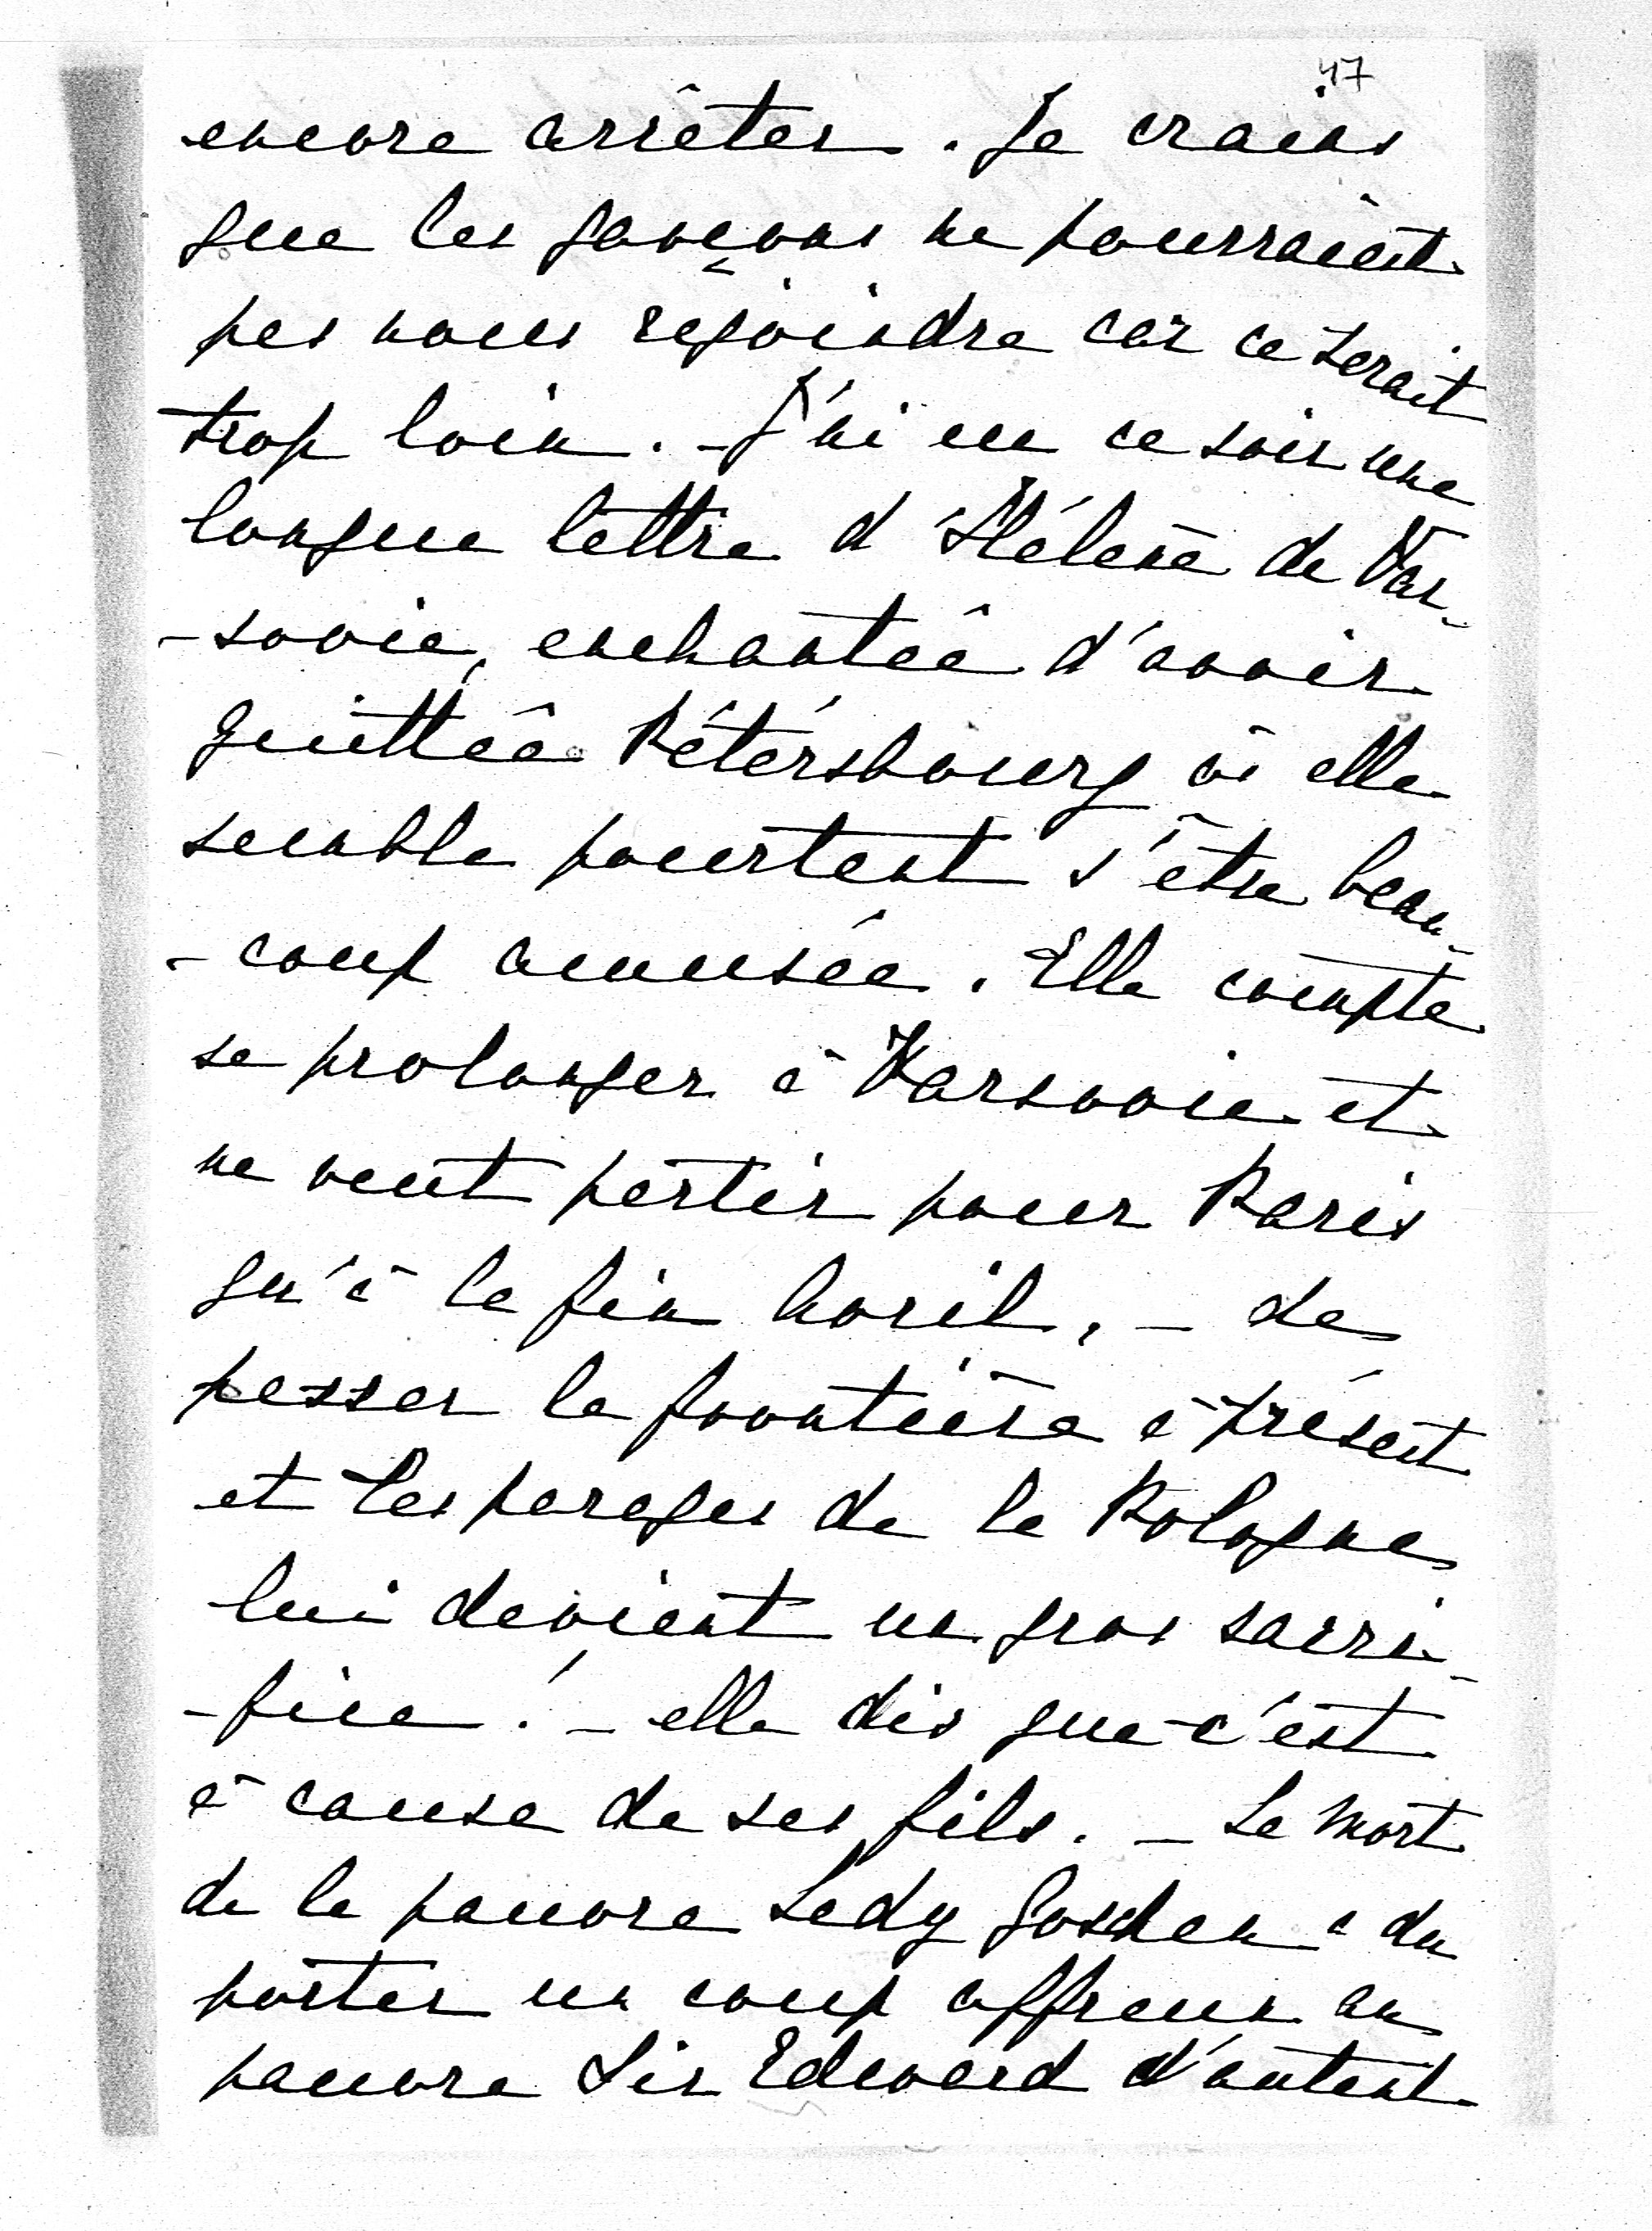 47
encore arrêter. Je crains
que les garçons ne pourraient
pas nous rejoindre car ce serait
trop loin. - J'ai eu ce soir une
longue lettre d'Hélène de Var-
-sovie, enchantée d'avoir
quittée Pétersbourg où elle
semble pourtant s'être beau-
-coup amusée. Elle compte
se prolonger à Varsovie et
ne veut partir pour Paris
qu'à la fin Avril, - de
passer la frontière à présent
et les parages de la Pologne
lui devient un gros sacri-
-fice! - elle dis que c'est
à cause de ses fils. - La mort
de la pauvre Lady Goschen a du
porter un coup affreux au
pauvre Sir Edward d'autant